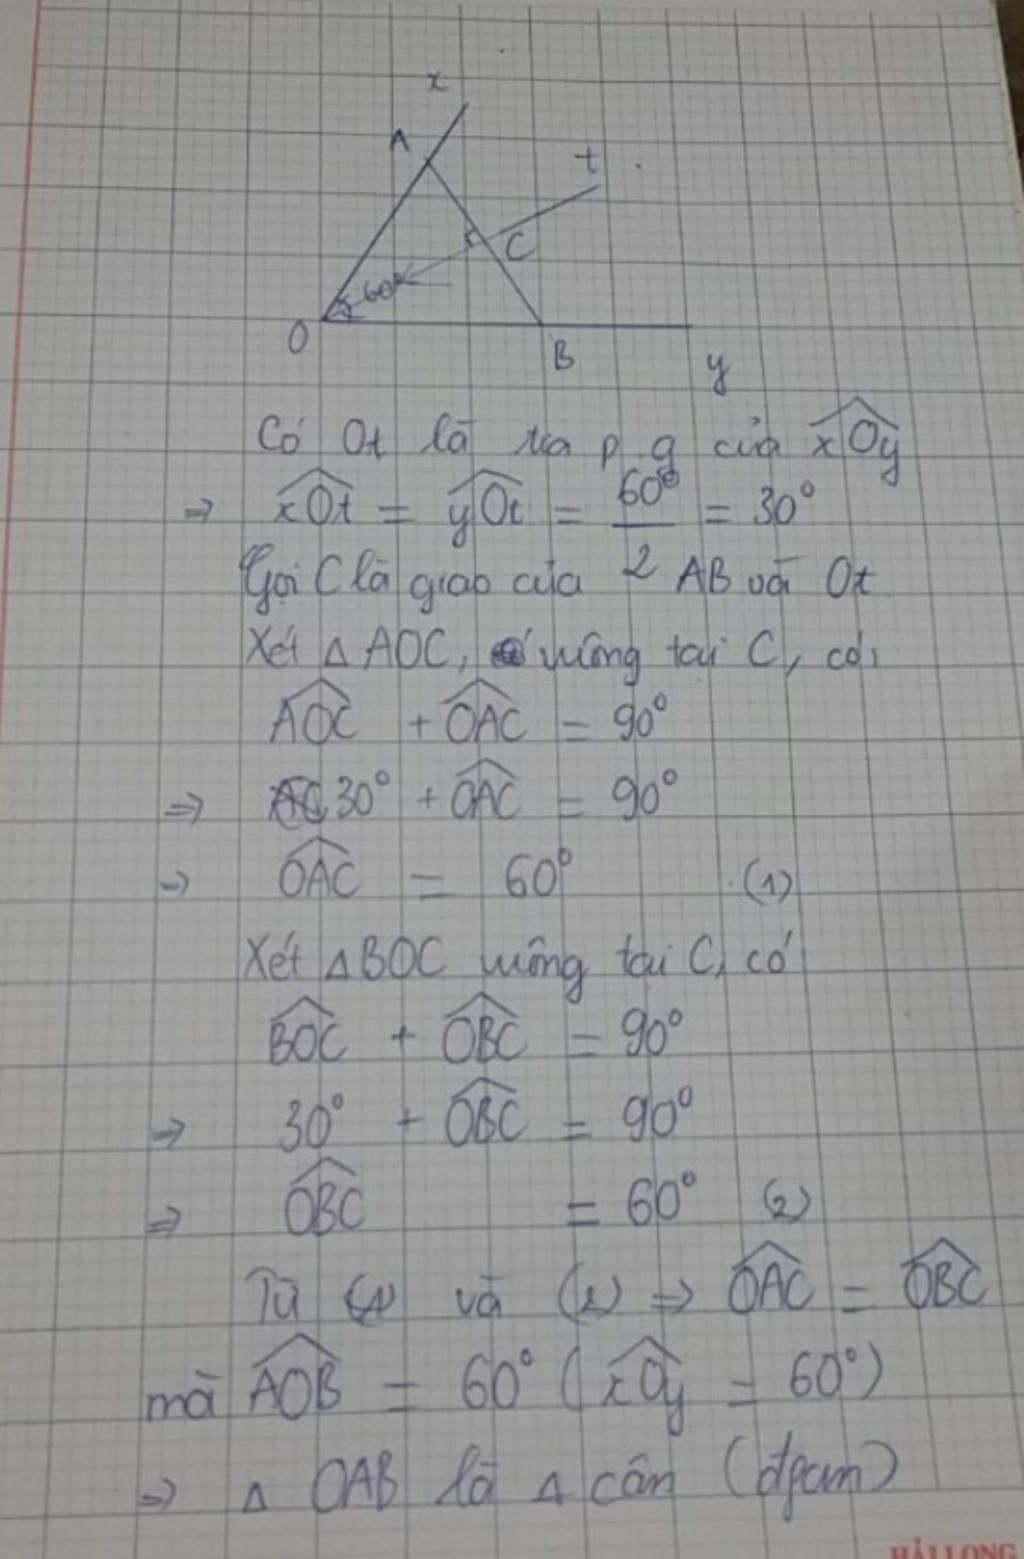 x
A
t
C
60°
O
B
y
Có Ot là tia p g của xOy
⇒ xOt = yOt = 60°/2 = 30°
Gọi C là giao của AB và Ot
Xét △ AOC, vuông tại C, có,
AOC + OAC = 90°
⇒ 30° + OAC = 90°
⇒ OAC = 60° (1)
Xét △BOC vuông tại C, có
BOC + OBC = 90°
⇒ 30° + OBC = 90°
⇒ OBC = 60° (2)
Từ (1) và (2) ⇒ OAC = OBC
mà AOB = 60° (xOy = 60°)
⇒ △ OAB là △ cân (đpcm)
HẢI LONG